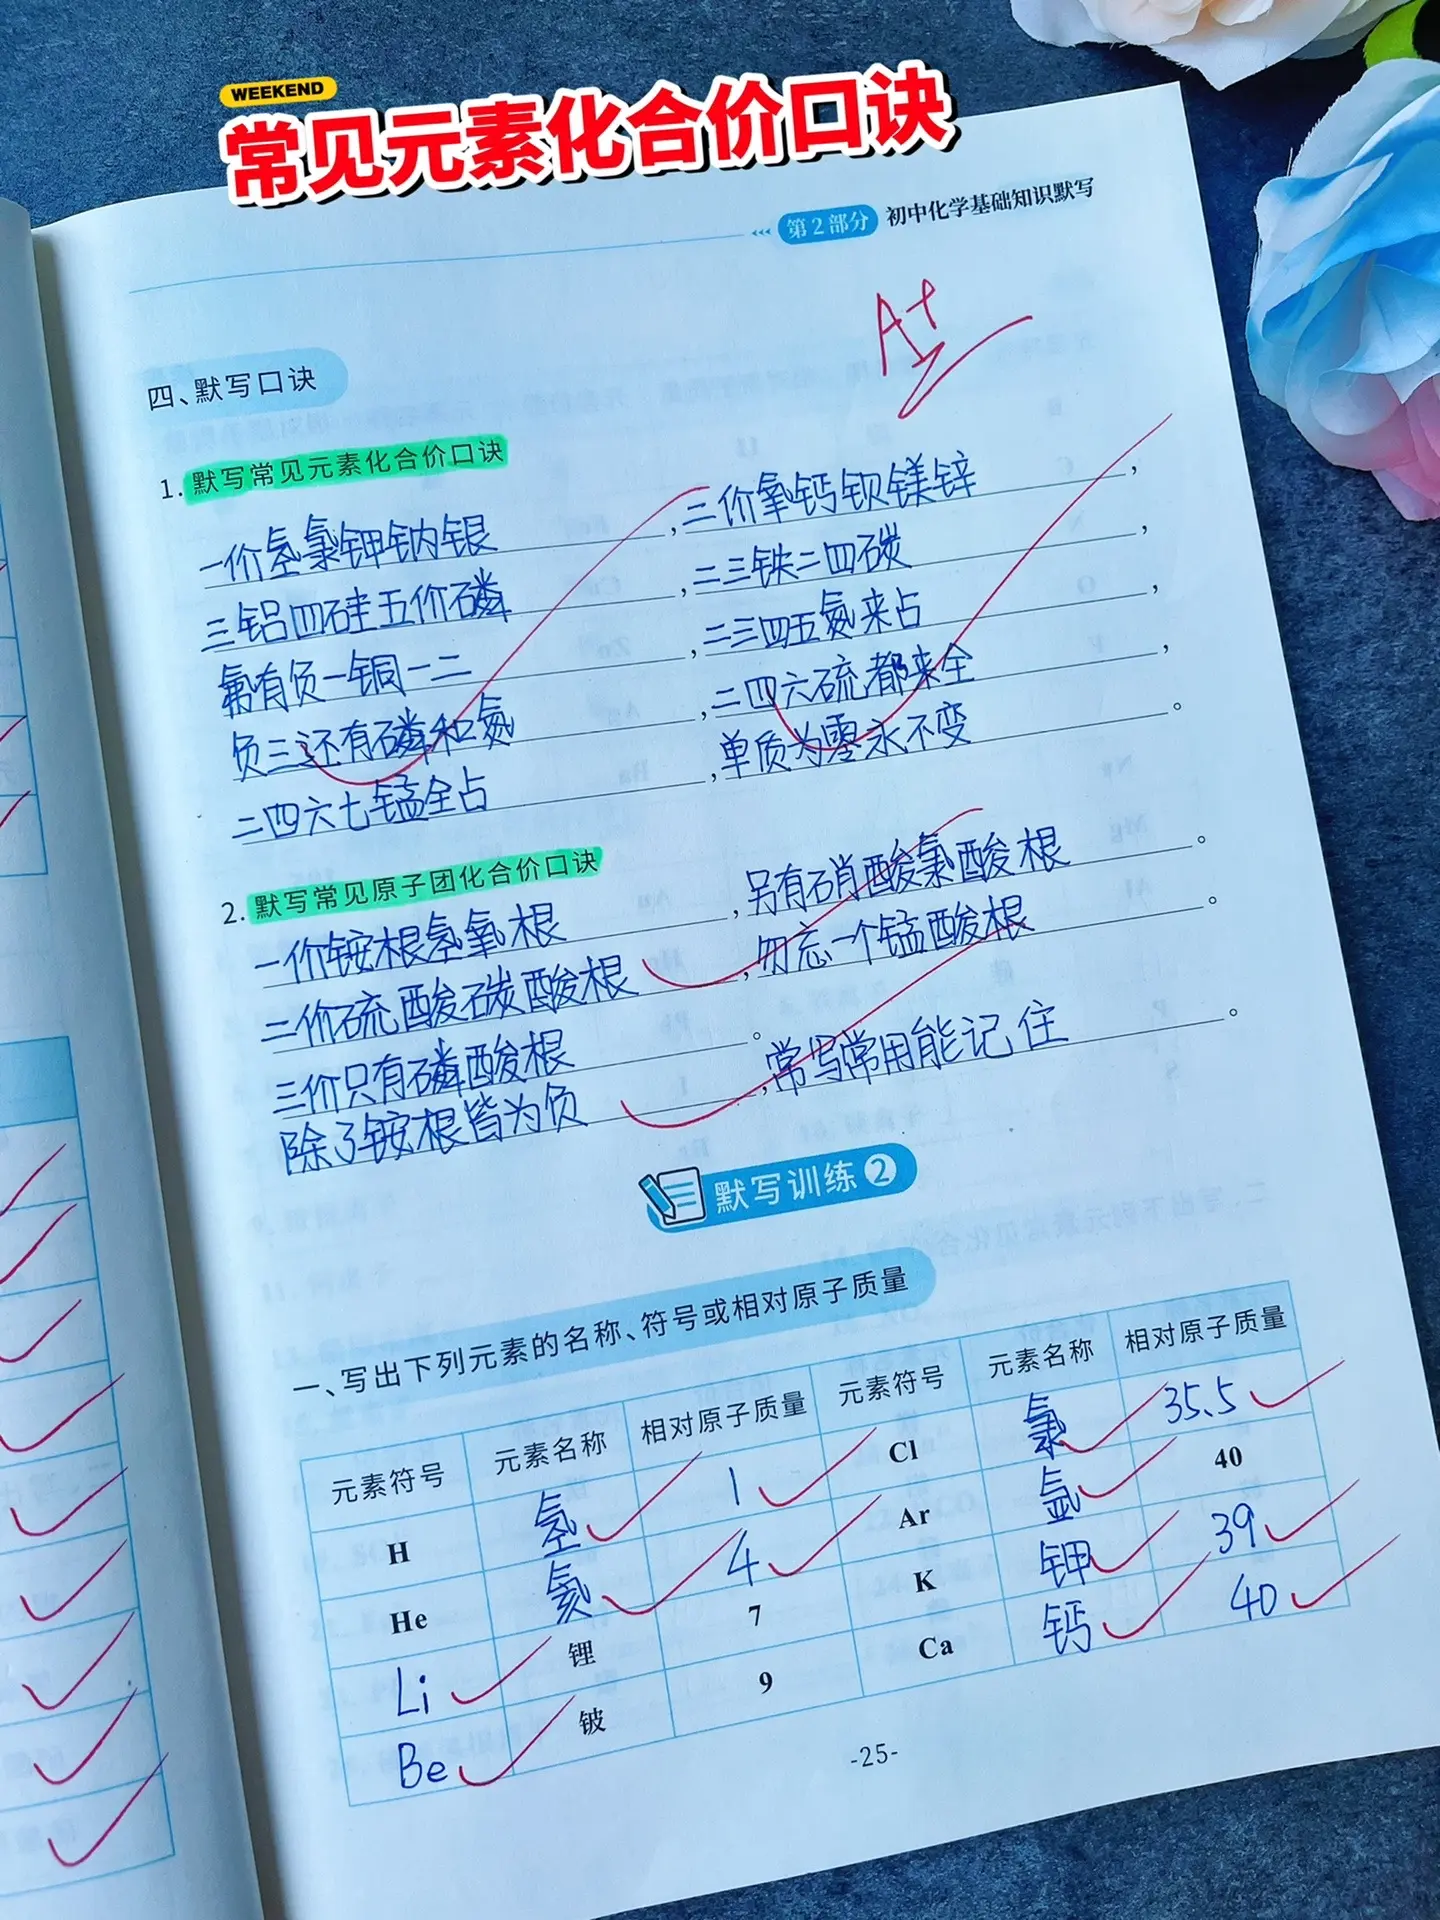 WEEKEND
常见元素化合价口诀
第2部分 初中化学基础知识默写
A+
四、默写口诀
1. 默写常见元素化合价口诀
一价氢氯钾钠银，二价氧钙钡镁锌，
三铝四硅五价磷，二三铁二四碳，
氟有负一铜一二，二三四五氮来占，
负三还有磷和氮，二四六硫都来全，
二四六七锰全占，单质为零永不变。
2. 默写常见原子团化合价口诀
一价铵根氢氧根，另有硝酸氯酸根。
二价硫酸碳酸根，勿忘一个锰酸根。
三价只有磷酸根。
除了铵根皆为负，常写常用能记住。
默写训练2
一、写出下列元素的名称、符号或相对原子质量
元素符号 元素名称 相对原子质量 元素符号 元素名称 相对原子质量
H 氢 1 Cl 氯 35.5
He 氦 4 Ar 氩 40
Li 锂 7 K 钾 39
Be 铍 9 Ca 钙 40
-25-